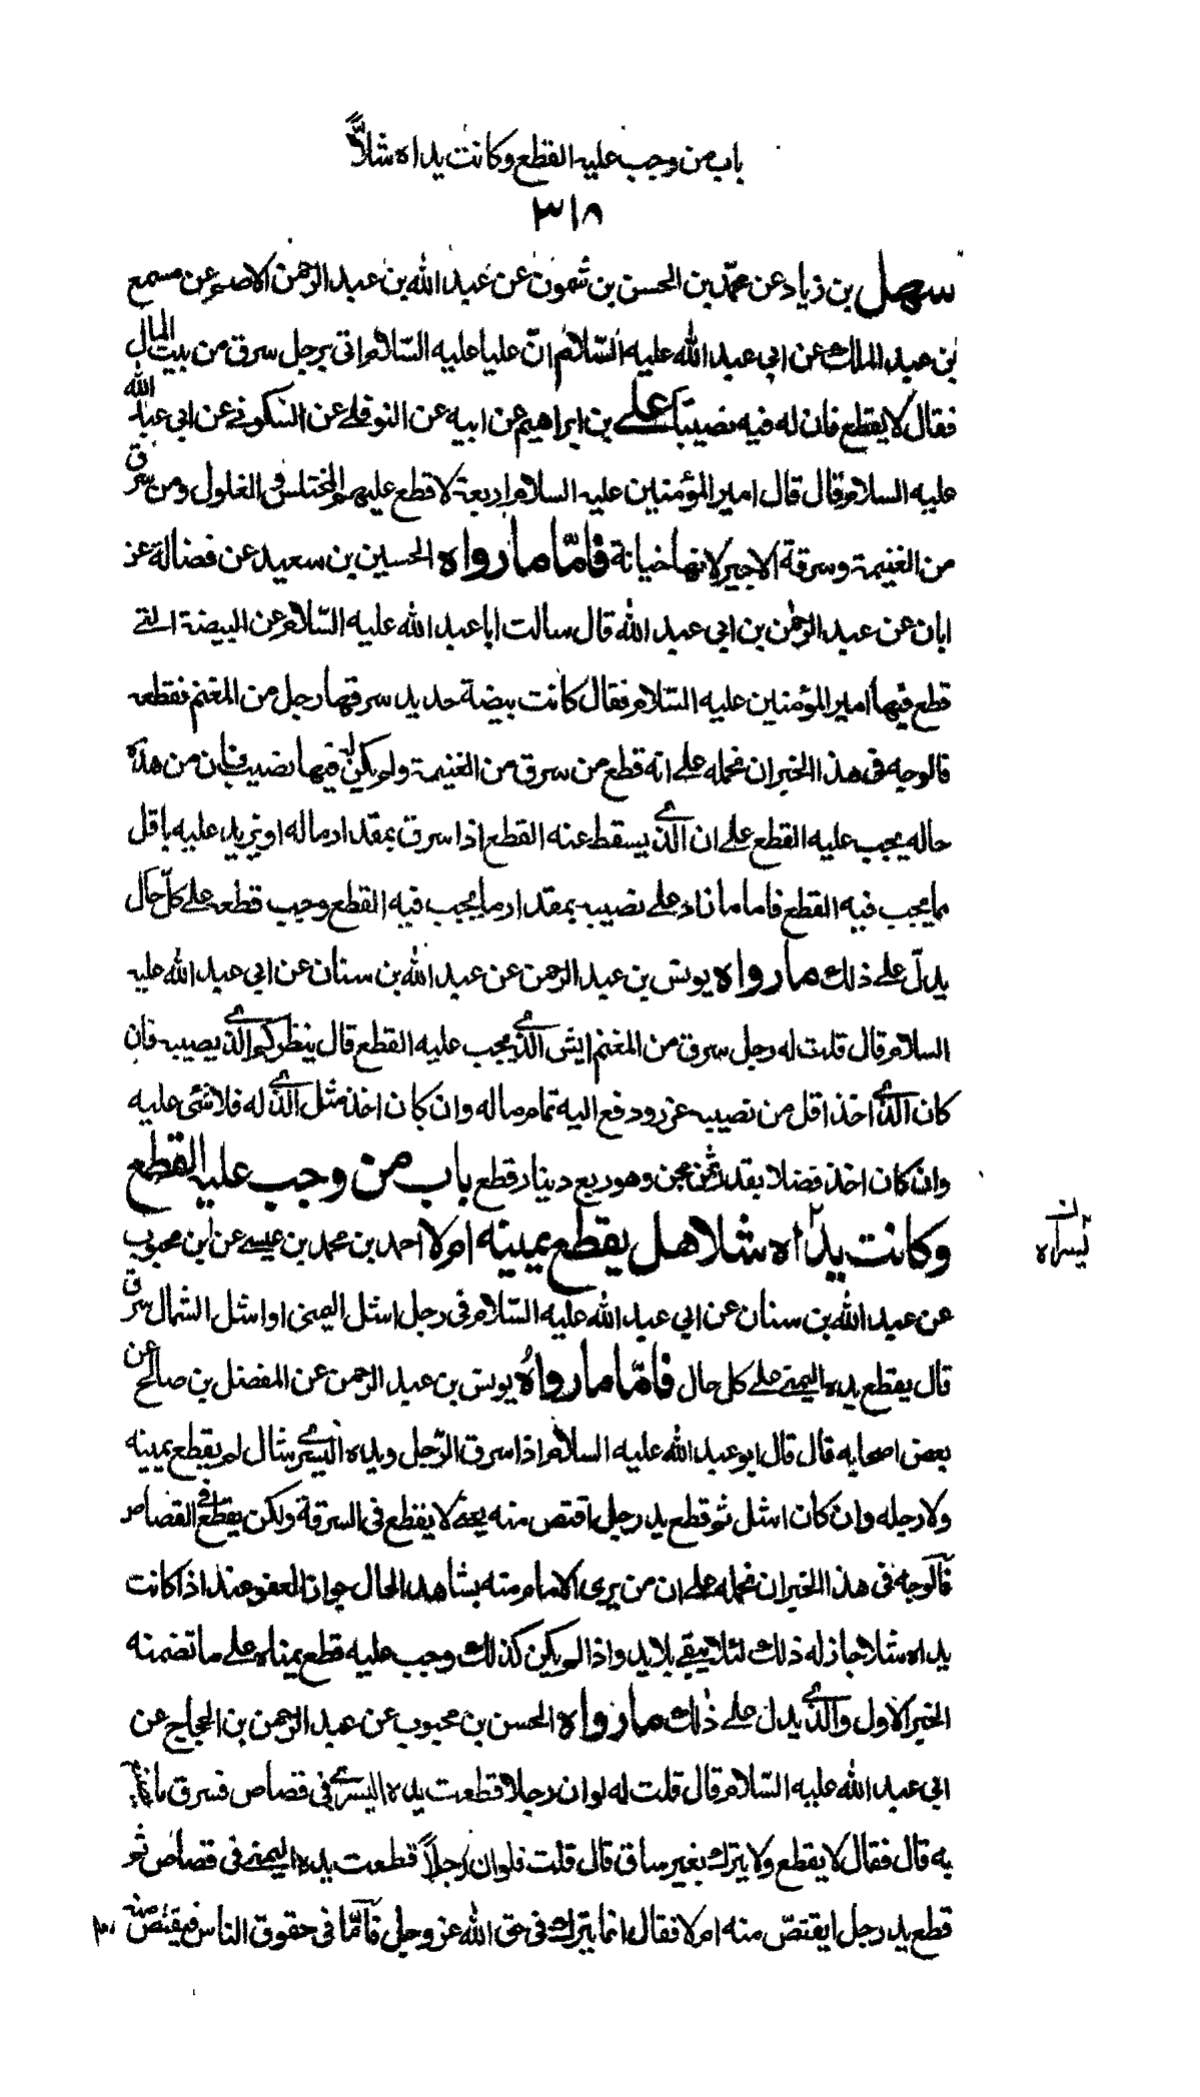 باب من وجب عليه القطع وكانت يداه شلاًّ
٣١٨
سهل بن زياد عن محمّد بن الحسن بن شمون عن عبد الله بن عبد الرحمن الاصم عن مسمع
بن عبد الملك عن ابي عبد الله عليه السّلام انّ عليا عليه السّلام اتي برجل سرق من بيت المال
فقال لا يقطع فان له فيه نصيبًا علي بن ابراهيم عن ابيه عن النوفلي عن السكوني عن ابي عبد الله
عليه السلام قال قال امير المؤمنين عليه السلام اربعة لا قطع عليهم المختلس والغلول ومن سرق
من الغنيمة وسرقة الاجير لانها خيانة فامّا ما رواه الحسين بن سعيد عن فضالة عن
ابان عن عبد الرحمن بن ابي عبد الله قال سالت ابا عبد الله عليه السّلام عن البيضة التي
قطع فيها امير المؤمنين عليه السّلام فقال كانت بيضة حديد سرقها رجل من المغنم فقطعه
فالوجه في هذا الخبر ان نحمله على انه قطع من سرق من الغنيمة ولم يكن له فيها نصيب فان من هذه
حاله يجب عليه القطع على ان الذي يسقط عنه القطع اذا سرق بمقدار ماله او يزيد عليه باقل
مما يجب فيه القطع فاما ما زاد على نصيبه بمقدار ما يجب فيه القطع وجب قطعه على كلّ حال
يدلّ على ذلك ما رواه يونس بن عبد الرحمن عن عبد الله بن سنان عن ابي عبد الله عليه
السلام قال قلت له رجل سرق من المغنم ايش الذي يجب عليه القطع قال ينظر كم الذي يصيبه فان
كان الذي اخذ اقل من نصيبه عزر ودفع اليه تمام ماله وان كان اخذ مثل الذي له فلا شئ عليه
وان كان اخذ فضلا بقدر ثمن مجن وهو ربع دينار قطع باب من وجب عليه القطع
وكانت يداه شلا هل يقطع يمينه ام لا احمد بن محمد بن عيسى عن ابن محبوب
ن
يسراه
عن عبد الله بن سنان عن ابي عبد الله عليه السّلام في رجل اشل اليمنى او اشل الشمال سرق
قال يقطع يده اليمنى على كل حال فامّا ما رواه يونس بن عبد الرحمن عن المفضل بن صالح عن
بعض اصحابه قال قال ابو عبد الله عليه السلام اذا سرق الرّجل ويده اليسرى شال لم يقطع يمينه
ولا رجله وان كان اشل ثم قطع يد رجل اقتص منه يعني لا يقطع في السرقة ولكن يقطع في القصاص
فالوجه في هذا الخبر ان نحمله على ان من يرى الامام منه بشاهد الحال جواز العفو عنه اذا كانت
يداه شلا جاز له ذلك لئلا يبقي بلا يد واذا لم يكن كذلك وجب عليه قطع يمناه على ما تضمنه
الخبر الاول والذي يدل على ذلك ما رواه الحسن بن محبوب عن عبد الرحمن بن الحجاج عن
ابي عبد الله عليه السّلام قال قلت له لو ان رجلا قطعت يده اليسرى في قصاص فسرق ما يصنع
به قال فقال لا يقطع ولا يترك بغير ساق قال قلت فلو ان رجلاً قطعت يده اليمنى في قصاص ثم
قطع يد رجل ايقتصّ منه ام لا فقال انما يترك في حق الله عز وجل فامّا في حقوق الناس فيقتص منه